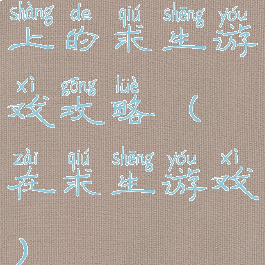 shàng de qiú shēng yóu
上的求生游
xì gōng lüè
戏攻略（
zài qiú shēng yóu xì
在求生游戏
）